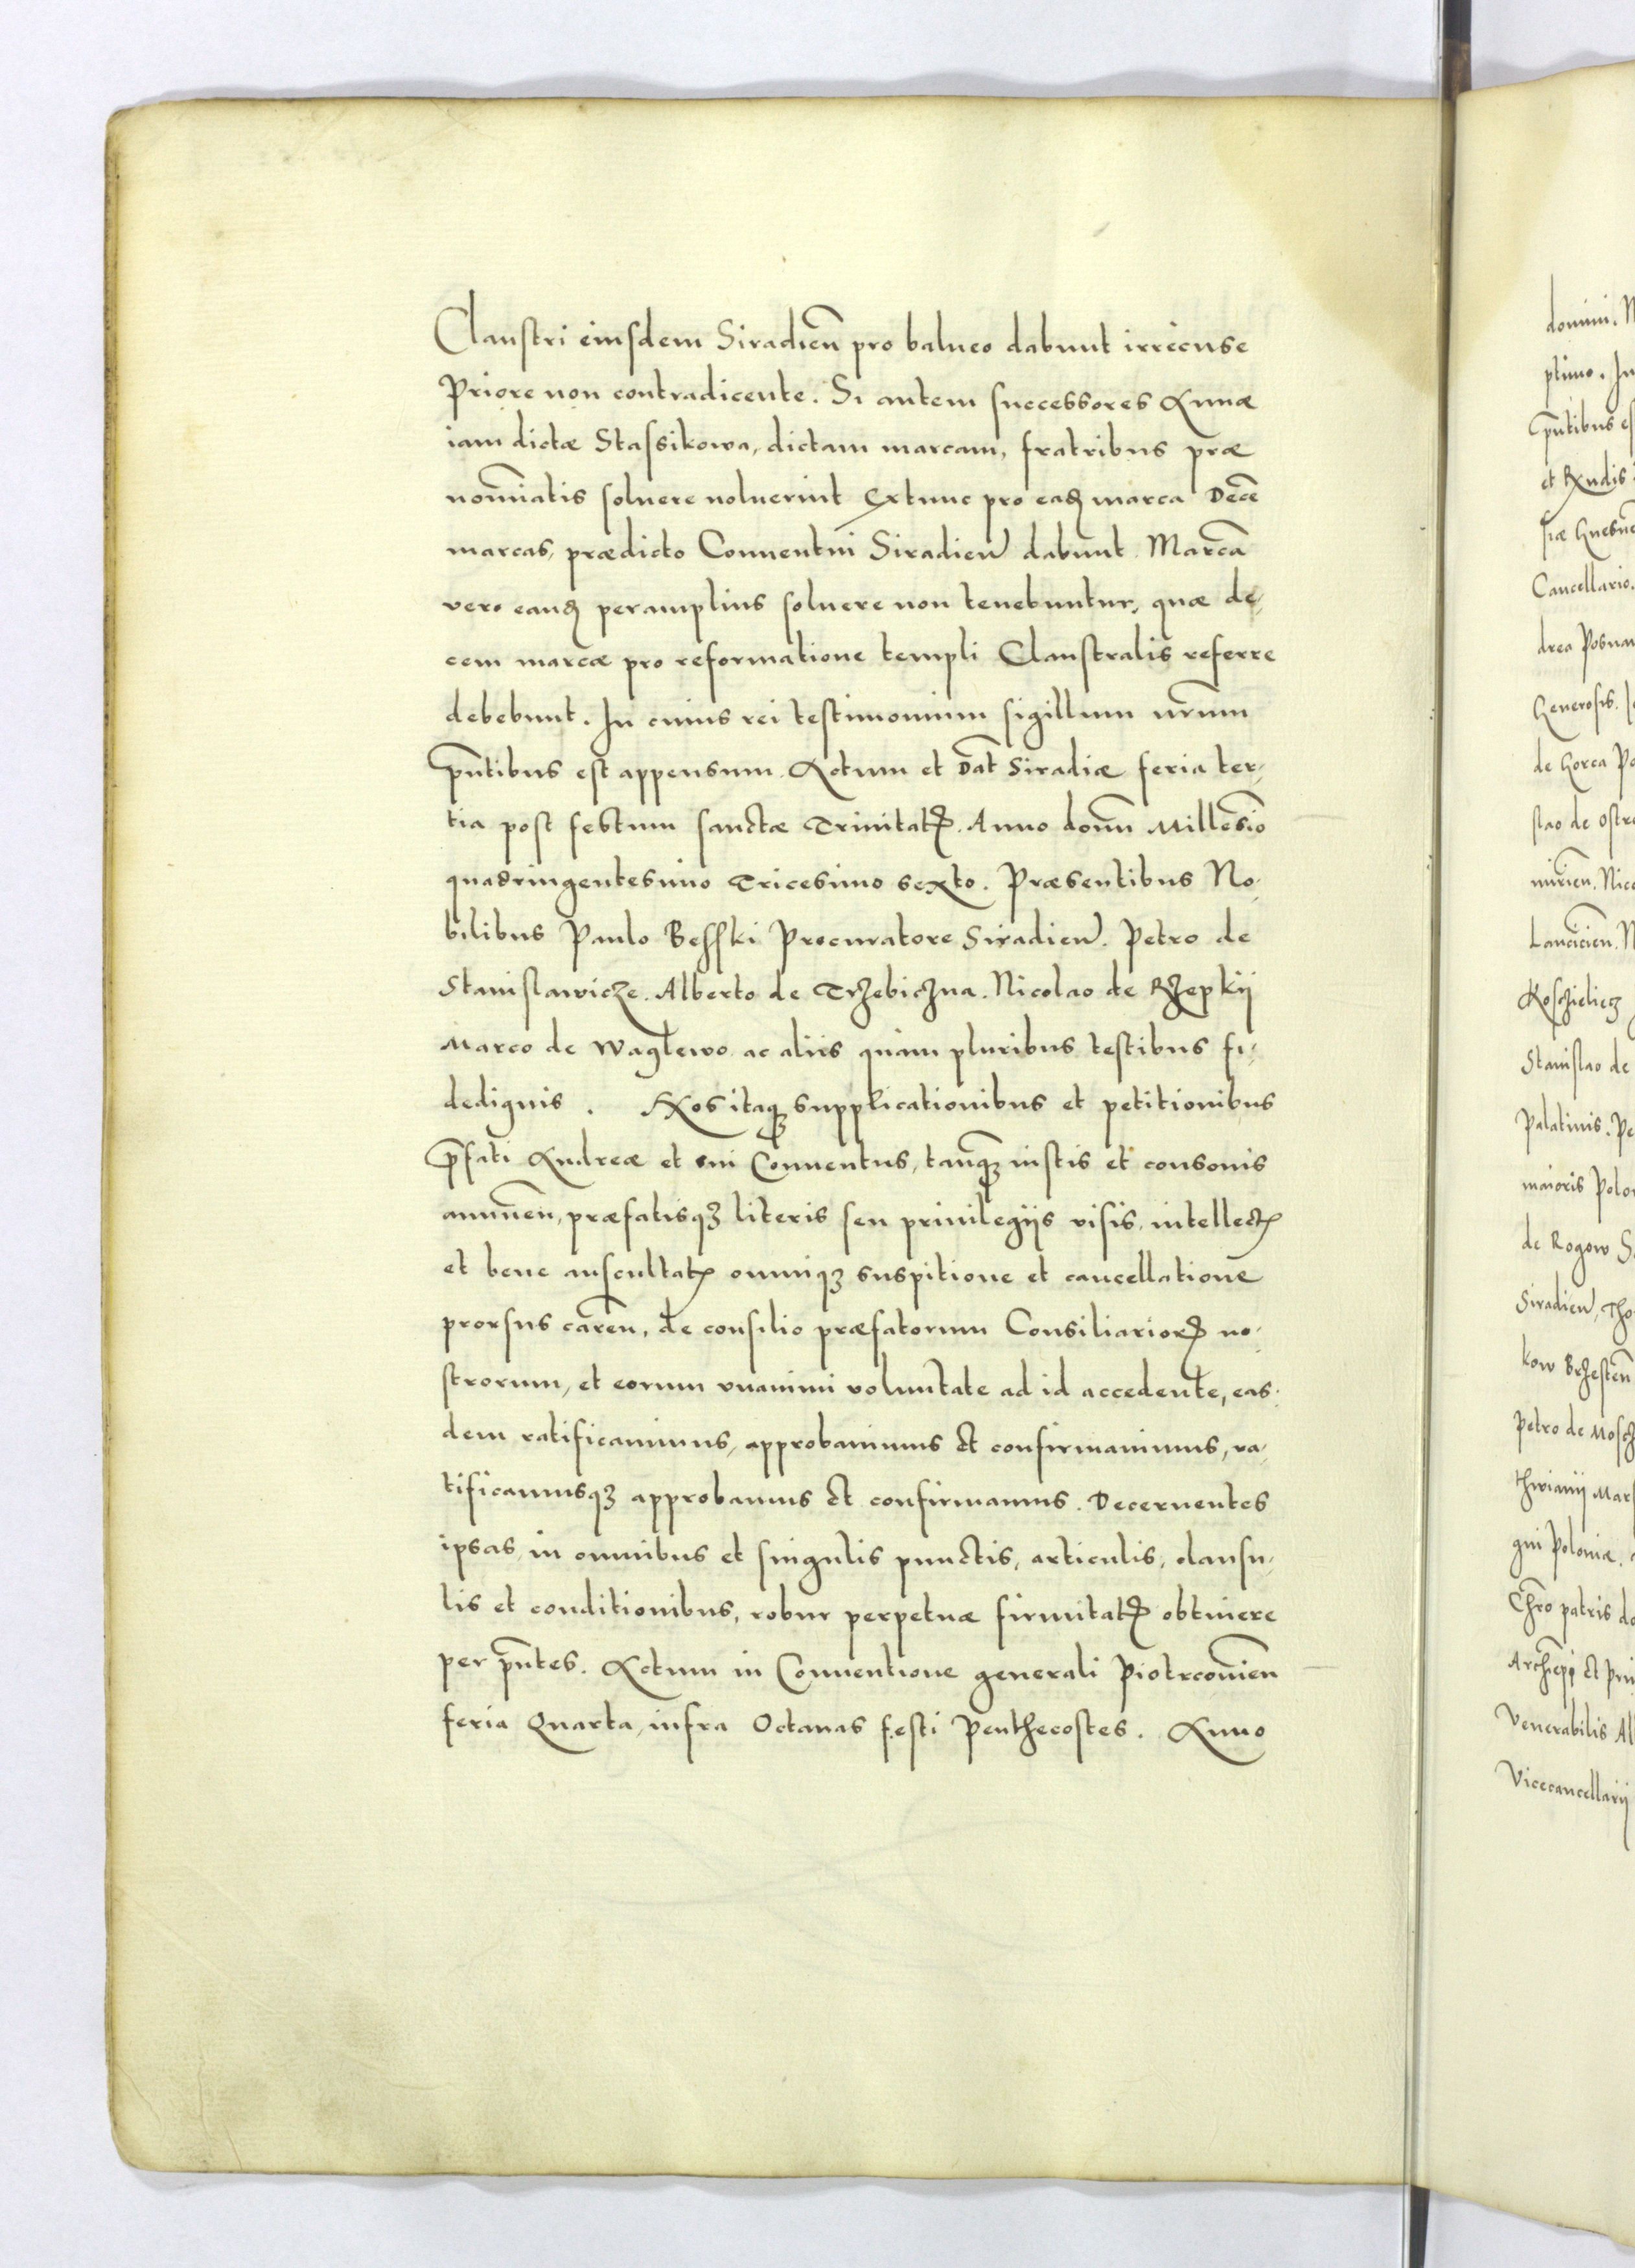 Claustri eiusdem Siradień pro balneo dabunt irrecuse
Priore non contradicente. Si autem successores Annæ
iam dictæ Stassikowa, dictam marcam, fratribus præ
nom̄iatis soluere noluerint Extunc pro eadꝫ marca Decē
marcas, prædicto Conuentui Siradień dabunt. Marcā
vero eandꝫ peramplius soluere non tenebuntur, quæ de,
cem marcæ pro reformatione templi Claustralis referre
debebunt. In cuius rei testimonium sigillum nr̄um
pn̄tibus est appensum. Actum et Dat̄ Siradiæ feria ter,
tia post festum sanctæ Trinitatꝭ. Anno domı̄ Millesīo
quadringentesimo Tricesimo sexto. Præsentibus No,
bilibus Paulo Besski Procuratore Siradień. Petro de
Stanislawicze. Alberto de Trzebiczna. Nicolao de Rzepkij
Marco de Waglewo ac aliis quàm pluribus testibus fi,
dedignis. Nos itaqꝫ supplicationibus et petitionibus
p̄fati Andreæ et sui Conuentus, tanqꝫ iustis et consonis
annueń, præfatisqꝫ literis seu priuilegijs visis, intellectꝭ
et bene auscultatꝭ omniqꝫ suspitione et cancellatione
prorsus careń, de consilio præfatorum Consiliariorꝝ no,
strorum, et eorum vnanimi voluntate ad id accedente, eas,
dem ratificauimus, approbauimus et confirmauimus, ra,
tificamusqꝫ approbamus et confirmamus. Decernentes
ipsas in omnibus et singulis punctis, articulis, clausu,
lis et conditionibus, robur perpetuæ firmitatꝭ obtinere
per pn̄tes. Actum in Conuentione generali Piotrcouień
feria Quarta, infra Octauas festi Penthecostes. Anno
domini.
ptimo. In
pn̄tibus
Cancellario.
drea Posnań
Generosis.
de Gorca
slao de Ostro
Lancicień.
Kosczielietz
Stanislao de
Palatinis. Pe
maioris Polo
de Rogow
Siradień, Tho
kow Brzesteń
Petro de Mosc
gni Poloniæ.
Chr̄o patris do
Archiep̄i et Pri
Venerabilis Al
Vicecancellarij